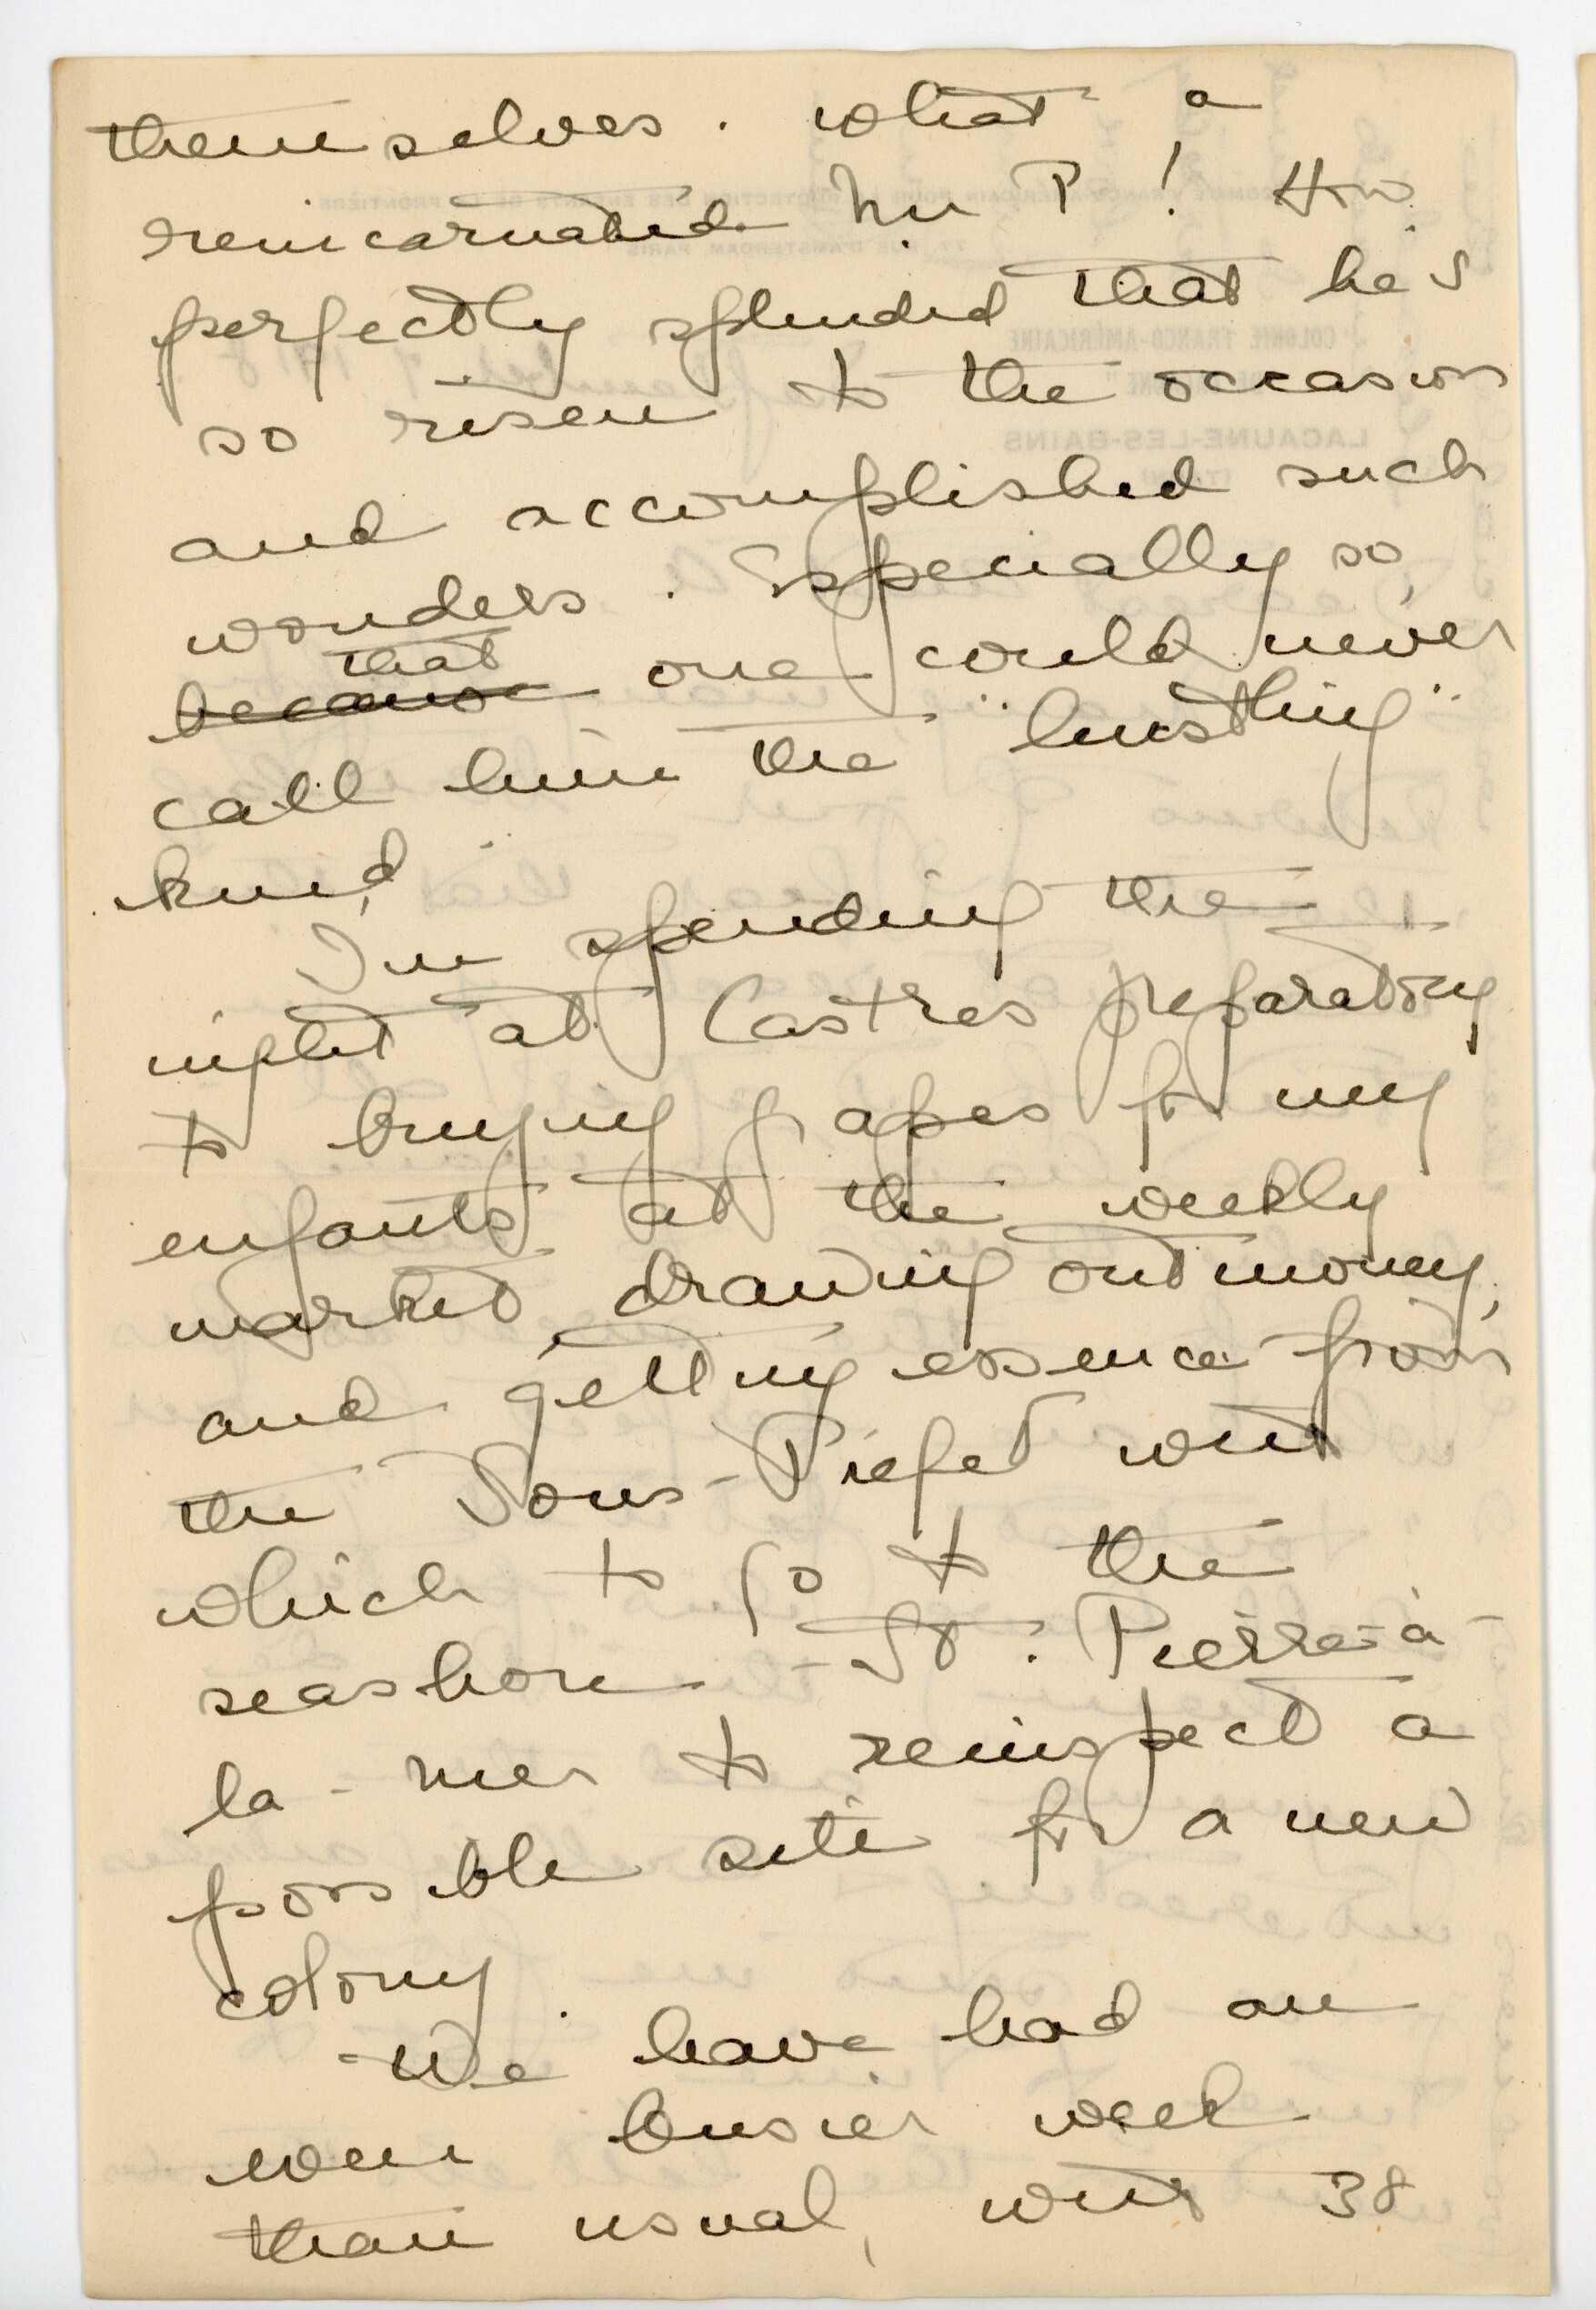 themselves. What a
reincarnated Mr P! How
perfectly splendid that he's
so risen to the occasion
and accomplished such
wonders. Especially so,
that
because one could never
call him the "hustling"
kind.
I'm spending the
night at Castres preparatory
to buying grapes for my
enfants at the weekly
market, drawing out money,
and getting essence from
the Sous-Préfet with
which to go to the
seashore - St. Pierre-à-
la-mer to reinspect a
possible site for a new
colony.
We have had an
even busier week
than usual, with 38